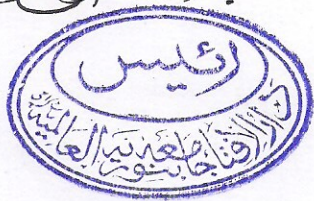 رئیس
دارالافتاء جامعہ بنوریہ العالمیہ